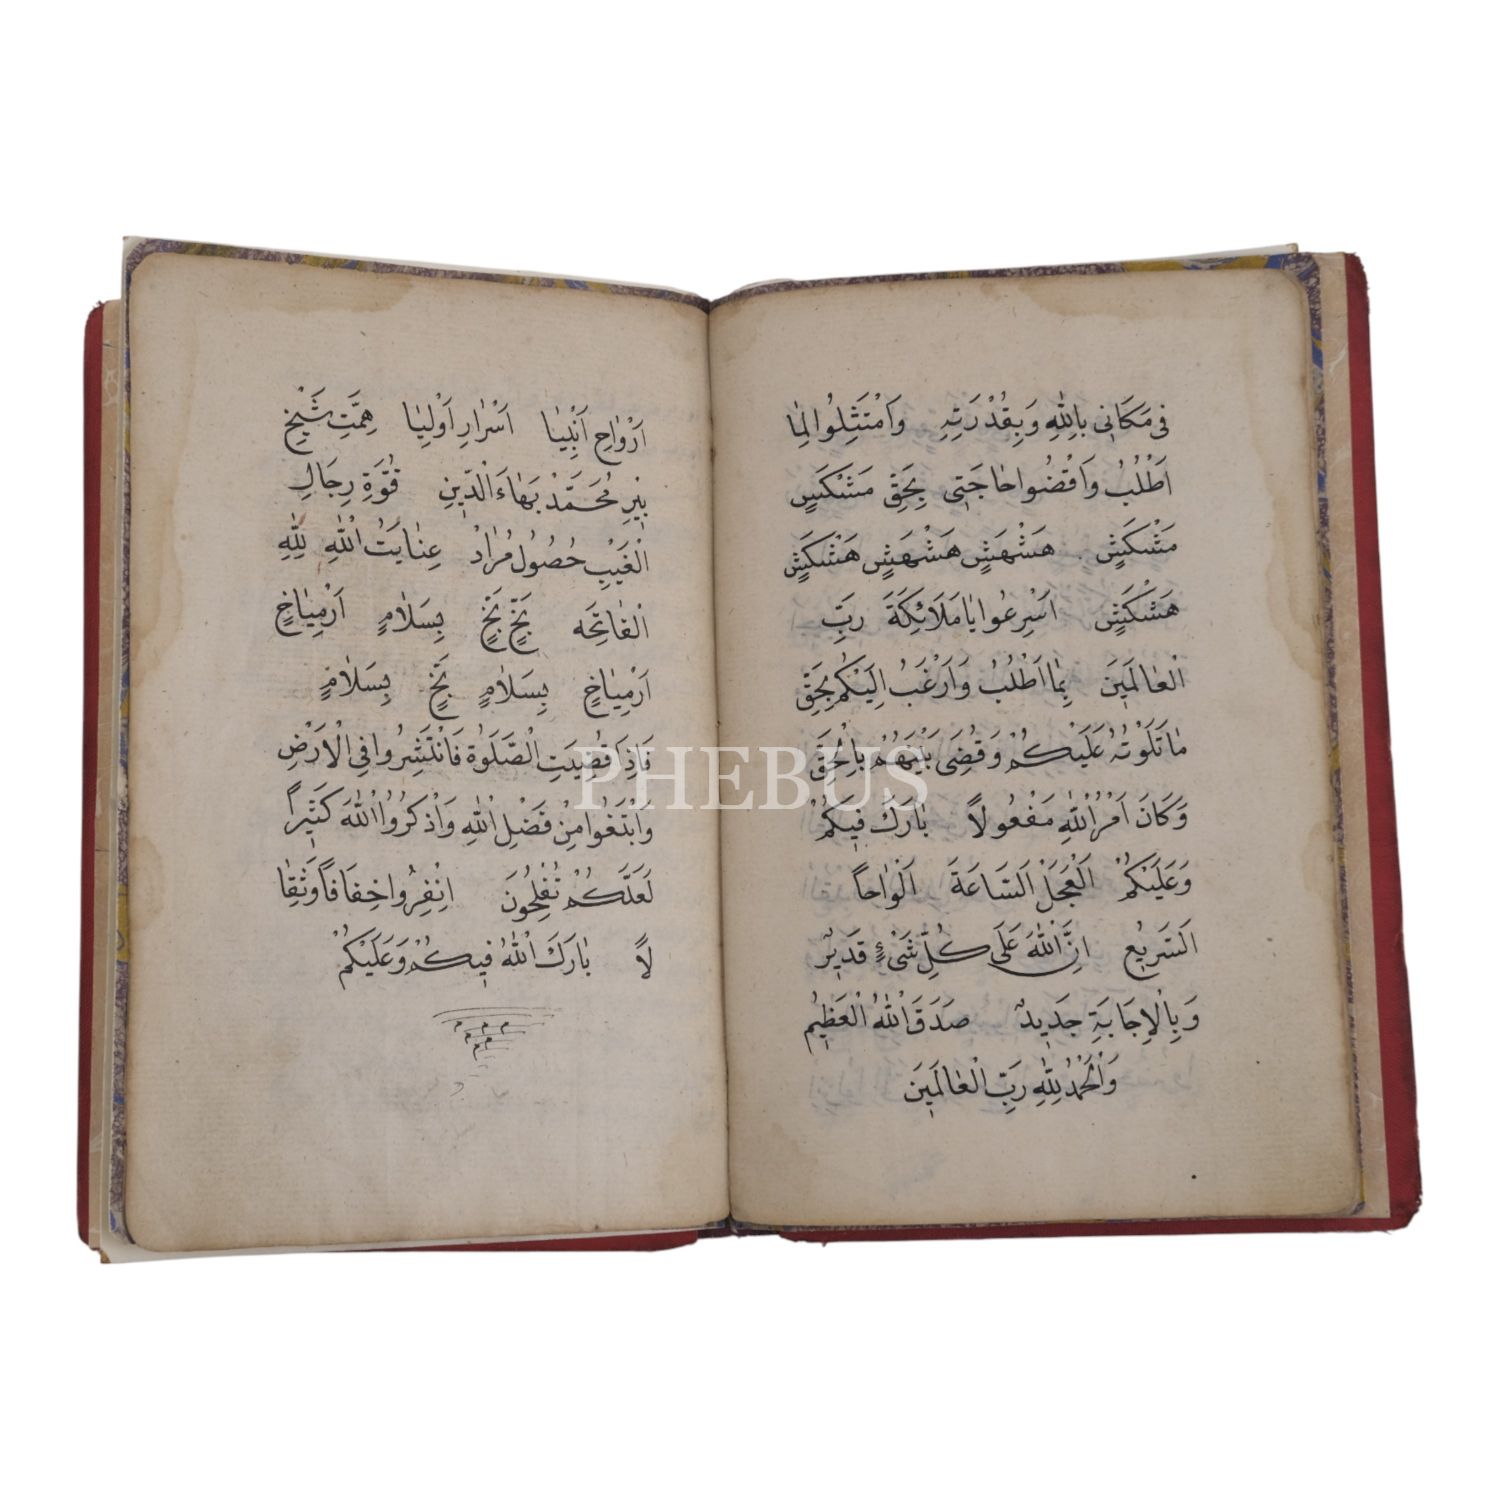 فِى مَكَانِى بِاللّٰهِ وَبِقُدْرَتِهِ وَامْتَثِلُوا لِمٰا
اَطْلُبُ وَاقْضُوا حٰاجَتِى بِحَقِّ مَشْكَشٍ
مَشْكَشٍ هَشْهَشٍ هَشْهَشٍ هَشْكَشٍ
هَشْكَشٍ اَسْرِعُوا يٰا مَلَائِكَةَ رَبِّ
الْعٰالَمِينَ بِمٰا اَطْلُبُ وَاَرْغَبُ اِلَيْكُمْ بِحَقِّ
مٰا تَلَوْتُهُ عَلَيْكُمْ وَقُضِىَ بَيْنَهُمْ بِالْحَقِّ
وَكَانَ اَمْرُ اللّٰهِ مَفْعُولاً بٰارَكَ فِيكُمْ
وَعَلَيْكُمْ الْعَجَلْ السَّاعَةَ اَلْوٰاحاً
السَّرِيعُ اِنَّ اللّٰهَ عَلَى كُلِّ شَىْءٍ قَدِيرٌ
وَبِالْاِجَابَةِ جَدِيدٌ صَدَقَ اللّٰهُ الْعَظِيمُ
وَالْحَمْدُ لِلّٰهِ رَبِّ الْعٰالَمِينَ
اَرْوٰاحِ اَنْبِيٰا اَسْرٰارِ اَوْلِيٰا هِمَّتِ شَيْخِ
پِيرِ مُحَمَّدْ بَهٰاءَالدِّينِ قُوَّةِ رِجَالِ
الْغَيْبِ حُصُولِ مُرٰادْ عِنٰايَتُ اللّٰهِ لِلّٰهِ
الْفٰاتِحَه بَخٍّ بَخٍّ بِسَلٰامٍ اَرْمِيٰاخٍ
اَرْمِيٰاخٍ بِسَلٰامٍ بَخٍّ بِسَلٰامٍ
فَاِذَا قُضِيَتِ الصَّلَوٰةُ فَانْتَشِرُوا فِى الْاَرْضِ
وَابْتَغُوا مِنْ فَضْلِ اللّٰهِ وَاذْكُرُوا اللّٰهَ كَثِيراً
لَعَلَّكُمْ تُفْلِحُونَ اِنْفِرُوا خِفَافاً وَثِقٰا
لاً بٰارَكَ اللّٰهُ فِيكُمْ وَعَلَيْكُمْ
PHEBUS